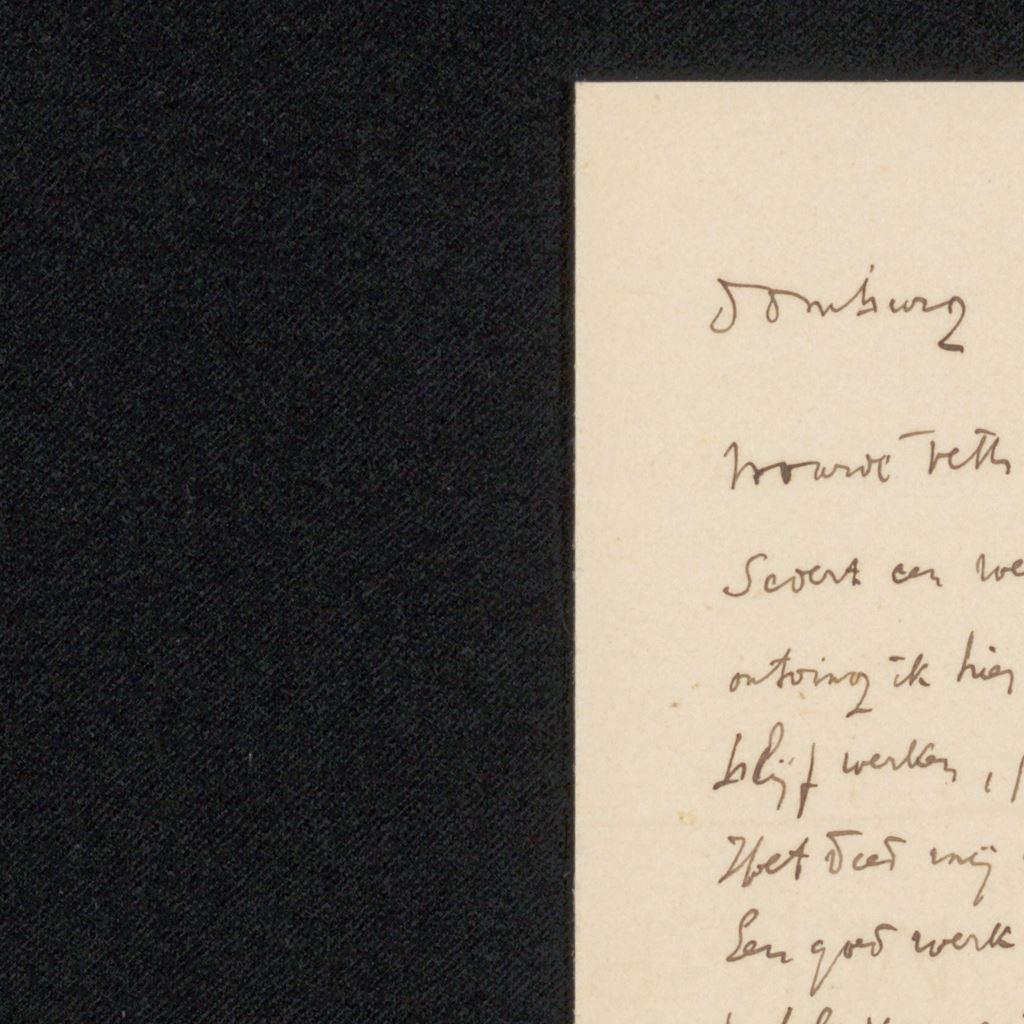 Domburg
Waarde Veth
Sedert een we
ontving ik hier
blijf werken,
Het deed mij
Een goed werk